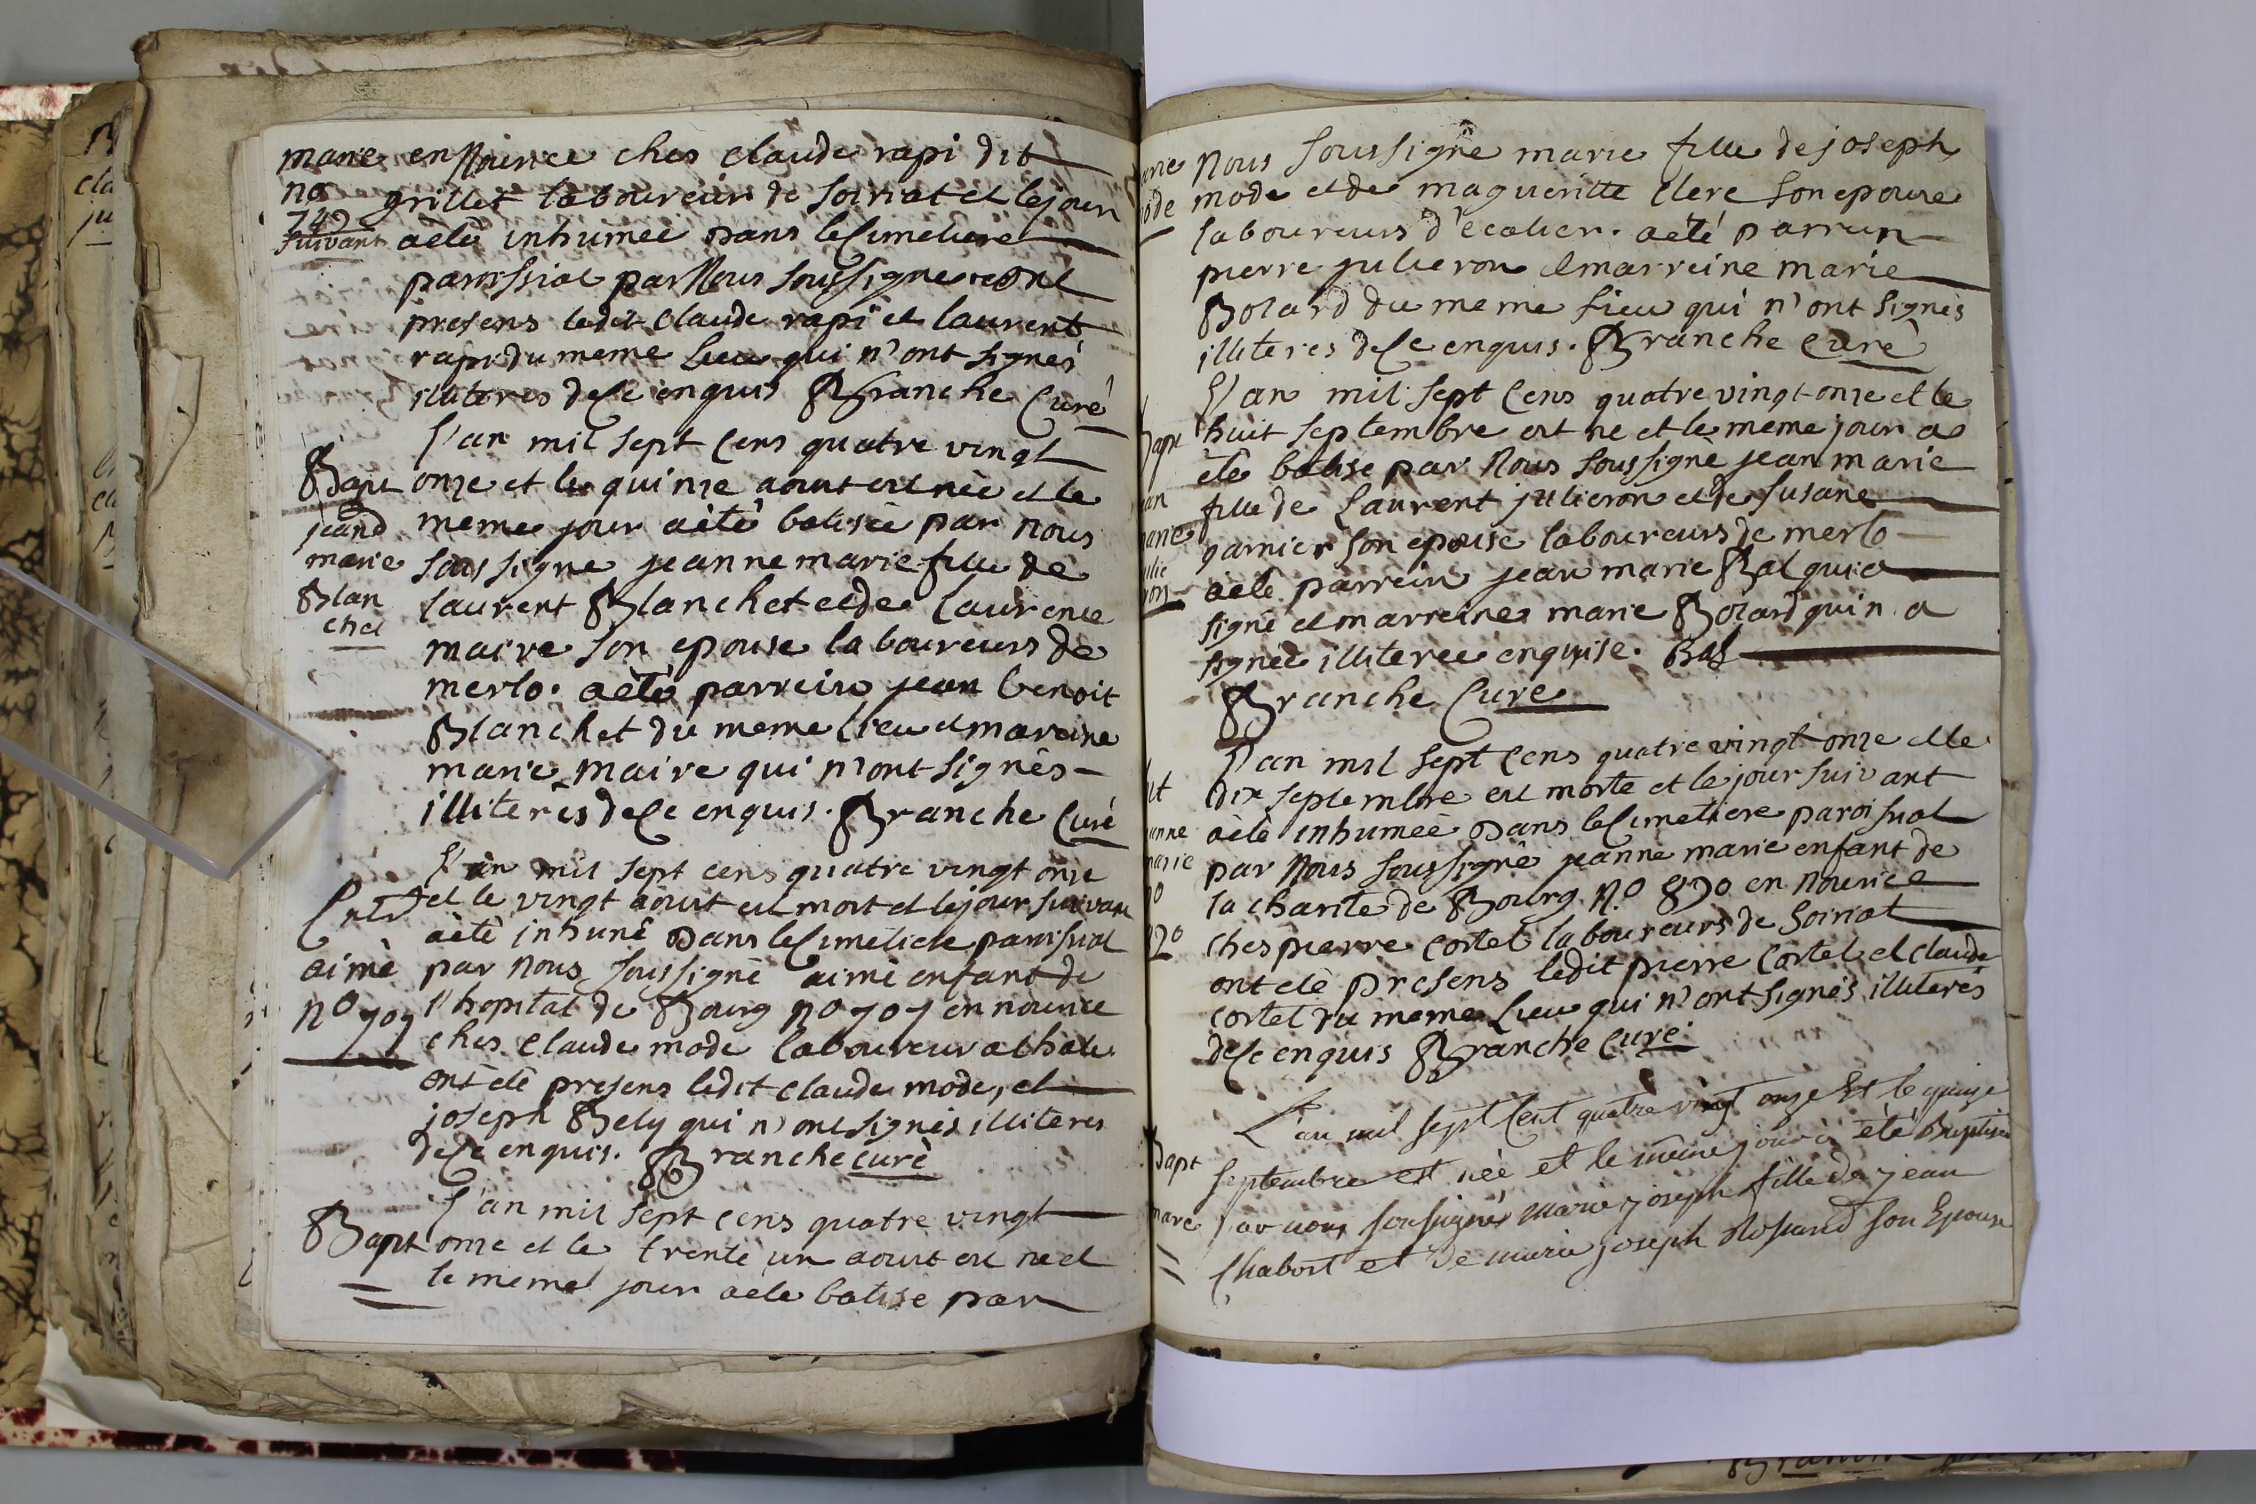 marie en Nource ches claude rapi dit
no grillet laboureur de soiriat et le jour
749
suivant a èté inhumeé Dans le Cimetiere
paroissial par Nous soussigné et ont
presens ledit Claude rapi et laurent
rapi du meme lieu qui n'ont signés
illiteres de Ce enquis Branche Curé
L'an mil sept Cens quatre vingt
Bapt onze et le quinze aout est neè et le
jeand meme jour a èté batiseè par nous
marie soussigne jeanne marie fille de
Blan laurent Blanchet et de laurence
chet
maire son epouse laboureurs de
merlo. a èté parrein jean benoit
Blanchet du meme lieu et mareine
marie maire qui n'ont signés
illiteres de Ce enquis. Branche Curé
L'an mil sept cens quatre vingt onze
Ent et le vingt aout est mort et le jour suivant
a èté inhumé Dans le Cimetiere paroissial
aimè par nous soussigné aimè enfant de
no 707 l'hopital de Bourg no 707 en nource
ches Claude mode laboureur a Chale
ont èté presens ledit claude mode, et
joseph Bely qui n'ont signés illiteres
de Ce enquis. Branche Curè
L'an mil sept cens quatre vingt
Bapt onze et le trente un aout est ne et
le meme jour a èté batise par
arie Nous soussigné marie fille de joseph
ode mode et de magueritte clerc son epouse
laboureurs d'ecolier. a èté parrun
pierre julieron et marreine marie
Bolard du meme lieu qui n'ont signés
illiteres de Ce enquis. Branche Curé
L'an mil sept Cens quatre vingt onze et le
Bapt huit septembre est ne et le meme jour a
èté batise par Nous soussigné jean marie
an fille de Laurent julieron et de susane
marie garnier son epouse laboureurs de merlo
ulie
ron a èté parrein jean marie Bal qui a
signé et marreine marie Bolard qui n a
signeé illiteree enquise. Bal
Branche Cure
L'an mil sept Cens quatre vingt onze et le
nt dix septembre est morte et le jour suivant
anne a èté inhumeè Dans le Cimetiere paroissial
marie par Nous soussigné jeanne marie enfant de
no la charité de Bourg no 820 en nource
820 ches pierre cortel laboureurs de Soiriat
ont èté presens ledit pierre Cortel et Claude
cortel du meme lieu qui n'ont signés illiterés
de Ce enquis Branche Curé.
L'an mil sept Cent quatre vingt onze Et le quinze
Bapt septembre est née et le même jour a été Baptisée
marie par nous soussigné marie joseph fille de jean
Chabort et de marie joseph son Epouse